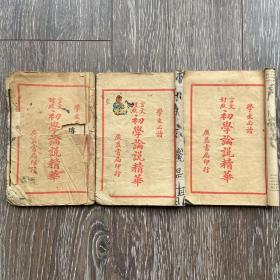 學文必讀
言文對照
初學論說精華
廣益書局印行
學文必讀
言文對照
初學論說精華
廣益書局印行
學文必讀
言文對照
初學論說精華
廣益書局印行